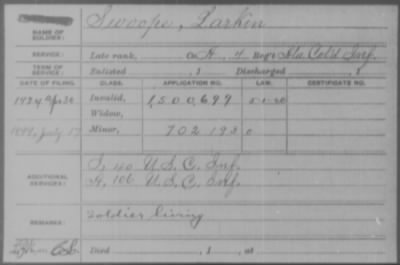 NAME OF SOLDIER: Swoope, Larkin
SERVICE: Late rank, Co. H, 4 Reg't Ala Cold Inf.
TERM OF SERVICE: Enlisted , 1 Discharged , 1
DATE OF FILING. CLASS. APPLICATION NO. LAW. CERTIFICATE NO.
1924 Apr 30 Invalid, 1,500,697
Widow,
Minor, 702 193
ADDITIONAL SERVICES: I, 40 U.S.C. Inf.
H, 106 U.S.C. Inf.
REMARKS: Soldier living
Died , 1 , at